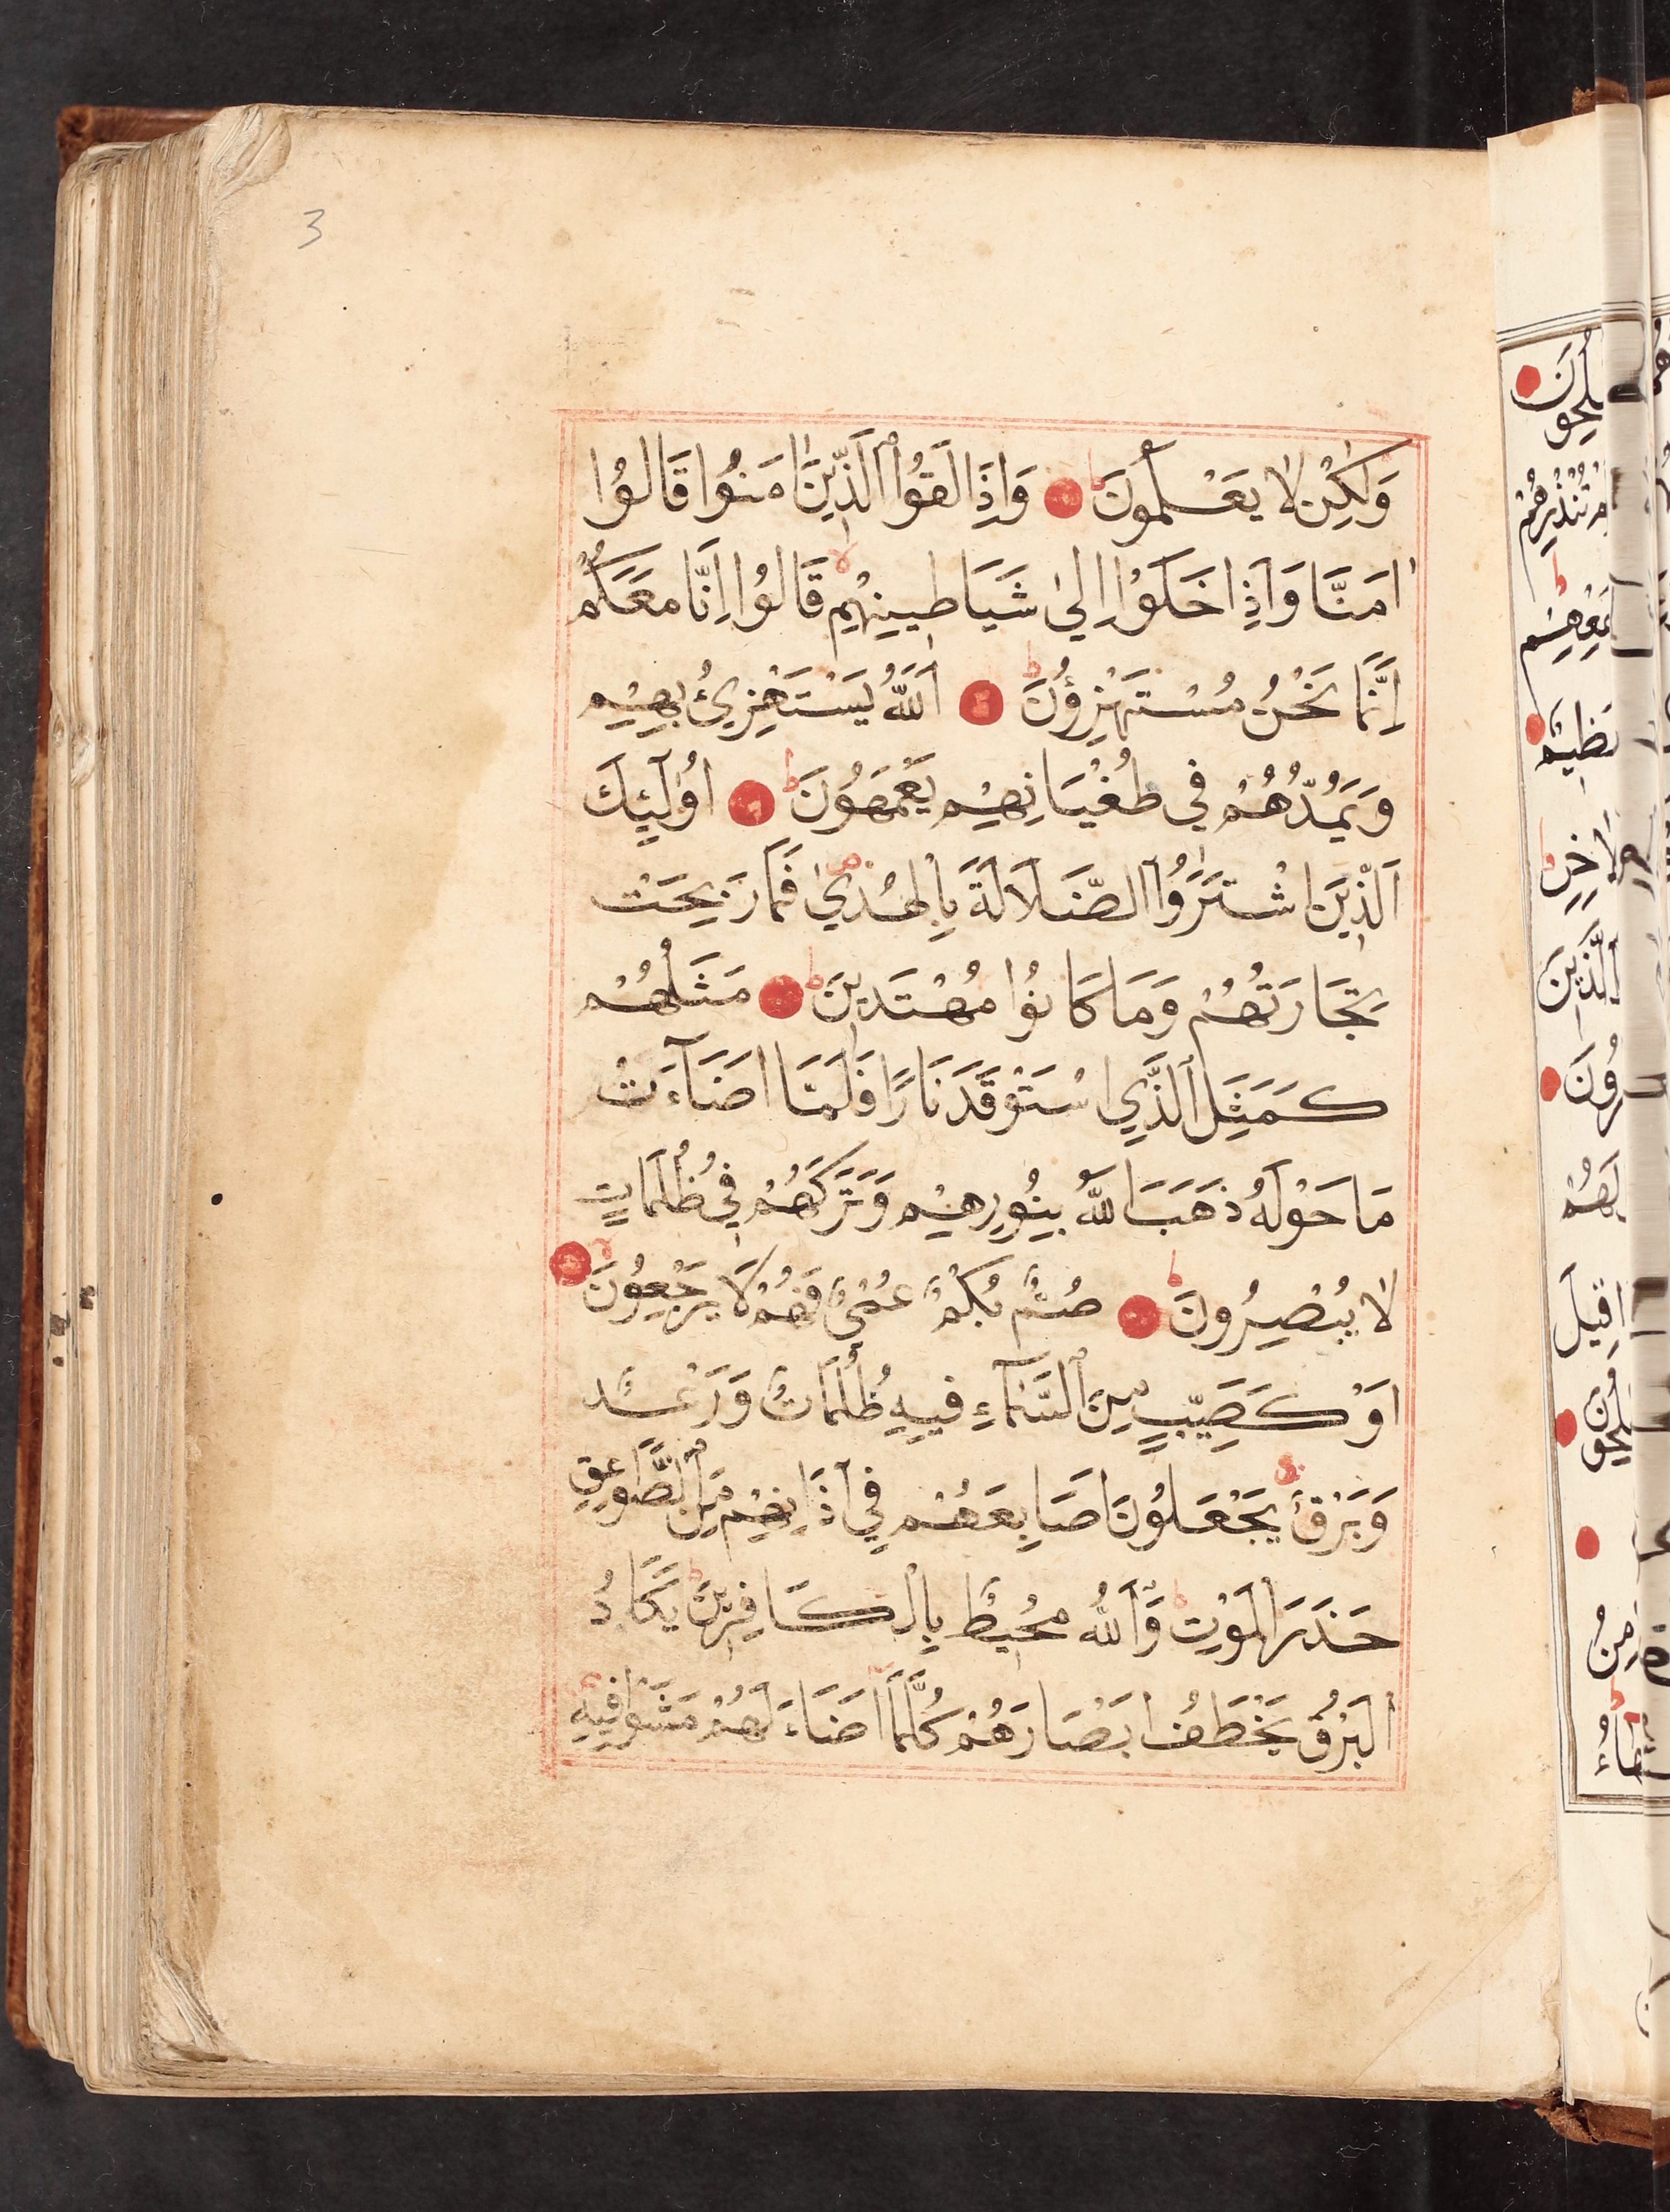 3
وَلٰكِنْ لَا يَعْلَمُونَ وَاِذَا لَقُوا الَّذِينَ اٰمَنُوا قَالُوا
اٰمَنَّا وَاِذَا خَلَوْا اِلٰى شَيَاطِينِهِمْ قَالُوا اِنَّا مَعَكُمْ
اِنَّمَا نَحْنُ مُسْتَهْزِؤُنَ اَللّٰهُ يَسْتَهْزِئُ بِهِمْ
وَيَمُدُّهُمْ فِي طُغْيَانِهِمْ يَعْمَهُونَ اُولٰٓئِكَ
الَّذِينَ اشْتَرَوُا الضَّلَالَةَ بِالْهُدٰى فَمَا رَبِحَتْ
تِجَارَتُهُمْ وَمَا كَانُوا مُهْتَدِينَ مَثَلُهُمْ
كَمَثَلِ الَّذِي اسْتَوْقَدَ نَارًا فَلَمَّا اَضَآءَتْ
مَا حَوْلَهُ ذَهَبَ اللّٰهُ بِنُورِهِمْ وَتَرَكَهُمْ فِي ظُلُمَاتٍ
لَا يُبْصِرُونَ صُمٌّ بُكْمٌ عُمْيٌ فَهُمْ لَا يَرْجِعُونَ
اَوْ كَصَيِّبٍ مِنَ السَّمَآءِ فِيهِ ظُلُمَاتٌ وَرَعْدٌ
وَبَرْقٌ يَجْعَلُونَ اَصَابِعَهُمْ فِي آذَانِهِمْ مِنَ الصَّوَاعِقِ
حَذَرَ الْمَوْتِ وَاللّٰهُ مُحِيطٌ بِالْكَافِرِينَ يَكَادُ
الْبَرْقُ يَخْطَفُ اَبْصَارَهُمْ كُلَّمَا اَضَآءَ لَهُمْ مَشَوْا فِيهِ